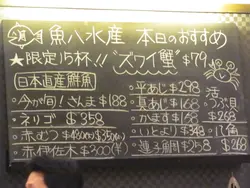 魚八水産 本日のおすすめ
★限定15杯!! "ズワイ蟹" $79
日本直産鮮魚
・今が旬!さんま $188
・ネリゴ $358
・赤むつ
・赤伊佐木 $300
・平あじ $298
・真あじ $168
・かます $168
・いとより $348
・蓮子鯛 $258
活
つぶ貝 $268
八角
$268